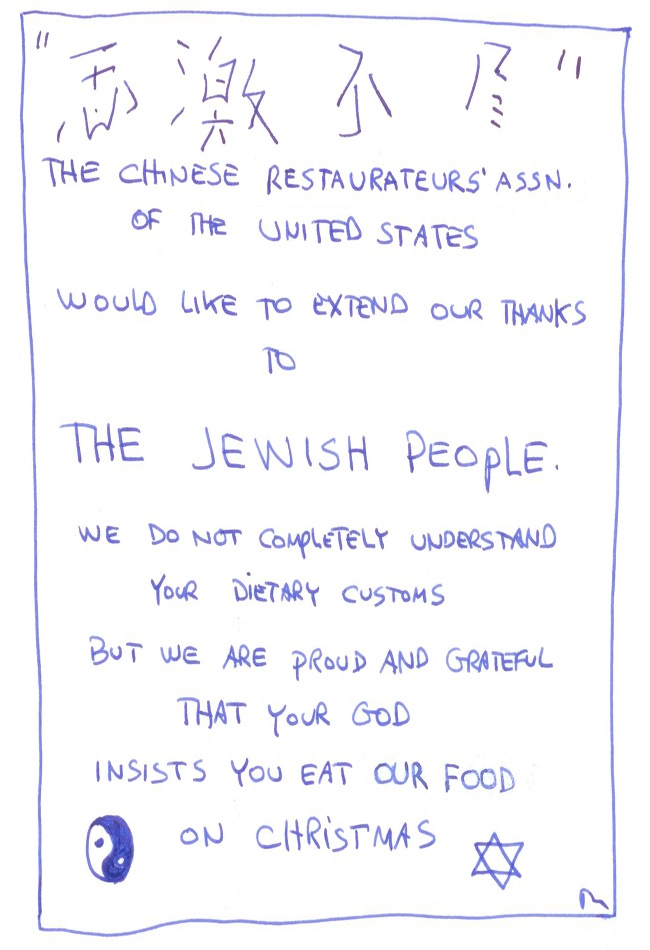 "感激不尽"
THE CHINESE RESTAURATEURS' ASSN.
OF THE UNITED STATES
WOULD LIKE TO EXTEND OUR THANKS
TO
THE JEWISH PEOPLE.
WE DO NOT COMPLETELY UNDERSTAND
YOUR DIETARY CUSTOMS
BUT WE ARE PROUD AND GRATEFUL
THAT YOUR GOD
INSISTS YOU EAT OUR FOOD
ON CHRISTMAS